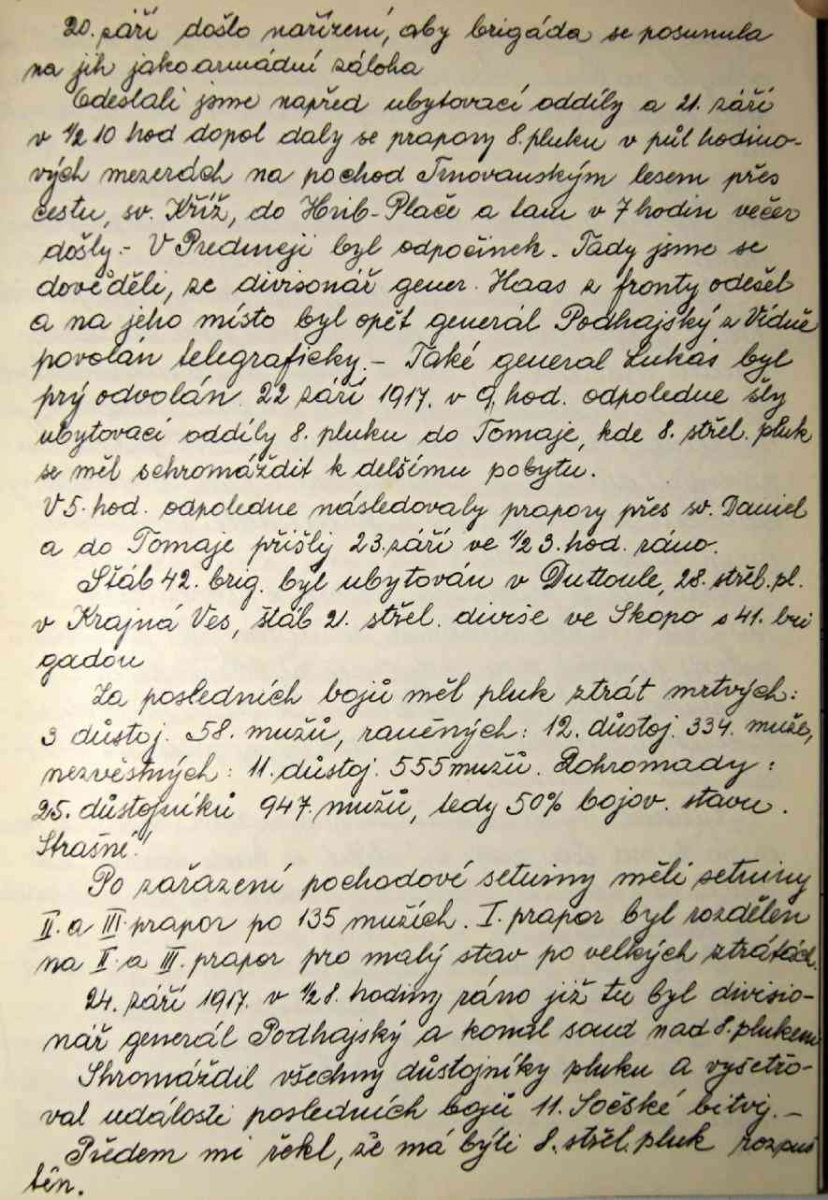 20. září došlo nařízení, aby brigáda se posunula
na jih jako armádní záloha
Odeslali jsme napřed ubytovací oddíly a 21. září
v ½ 10 hod dopol daly se prapory 8. pluku v půl hodino-
vých mezerách na pochod Trnovanským lesem přes
cestu, sv. Kříž, do Hrib-Plače a tam v 7 hodin večer
došly.- V Predmeji byl odpočinek. Tady jsme se
dověděli, ze divisonář gener. Haas z fronty odešel
a na jeho místo byl opět generál Podhajský z Vídně
povolán telegraficky.- Také general Lukáš byl
prý odvolán. 22 září 1917. v 9 hod. odpoledne šly
ubytovací oddíly 8. pluku do Tomaje, kde 8. střel. pluk
se měl schromáždit k delšímu pobytu.
V 5. hod. odpoledne následovaly prapory přes sv. Daniel
a do Tomaje přišly 23. září ve ½ 3. hod. ráno.
Štáb 42. brig. byl ubytován v Duttoule, 28. střel. pl.
v Krajná Ves, štáb 21. střel. divise ve Skopo s 41. bri
gadou
Za posledních bojů měl pluk ztrát mrtvých:
3 důstoj. 58. mužů, raněných: 12. důstoj. 334. muže,
nezvěstných: 11. důstoj. 555 mužů. Dohromady:
25. důstojníků 947. mužů, tedy 50% bojov. stavu.
Strašné!
Po zařazení pochodové setniny měli setniny
II. a III. prapor po 135 mužích. I. prapor byl rozdělen
na II. a III. prapor pro malý stav po velkých ztrátách.
24. září 1917. v ½ 8. hodiny ráno již tu byl divisio-
nář generál Podhajský a konal soud nad 8. plukem
Shromáždil všechny důstojníky pluku a vyšetřo-
val události posledních bojů 11. Sočské bitvy.-
Předem mi řekl, že má býti 8. střel. pluk rozpuš
těn.